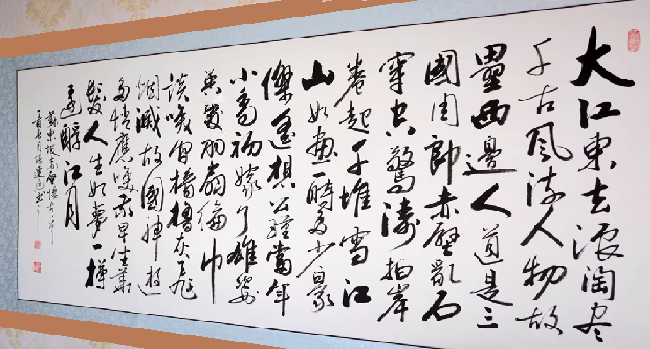 大江東去浪淘尽
千古風流人物故
壘西邊人道是三
國周郎赤壁亂石
穿空驚濤拍岸
卷起千堆雪江
山如畫一時多少豪
傑遙想公瑾當年
小喬初嫁了雄姿
英發羽扇綸巾
談笑間檣櫓灰飛
烟滅故國神遊
多情應笑我早生華
髮人生如夢一樽
還酹江月
蘇東坡赤壁懷古